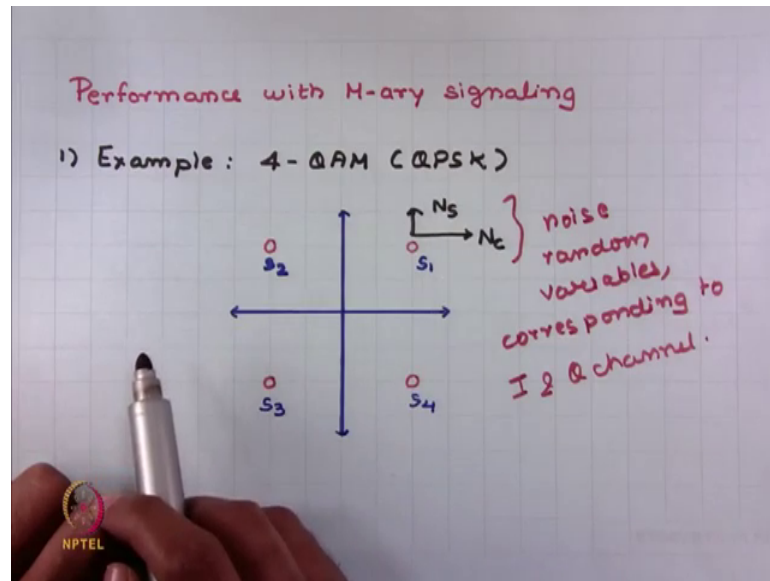 Performance with M-ary signaling
1) Example: 4-QAM (QPSK)
S2
S1
NS
NC
noise
random
variables,
corresponding to
I & Q channel.
S3
S4
NPTEL